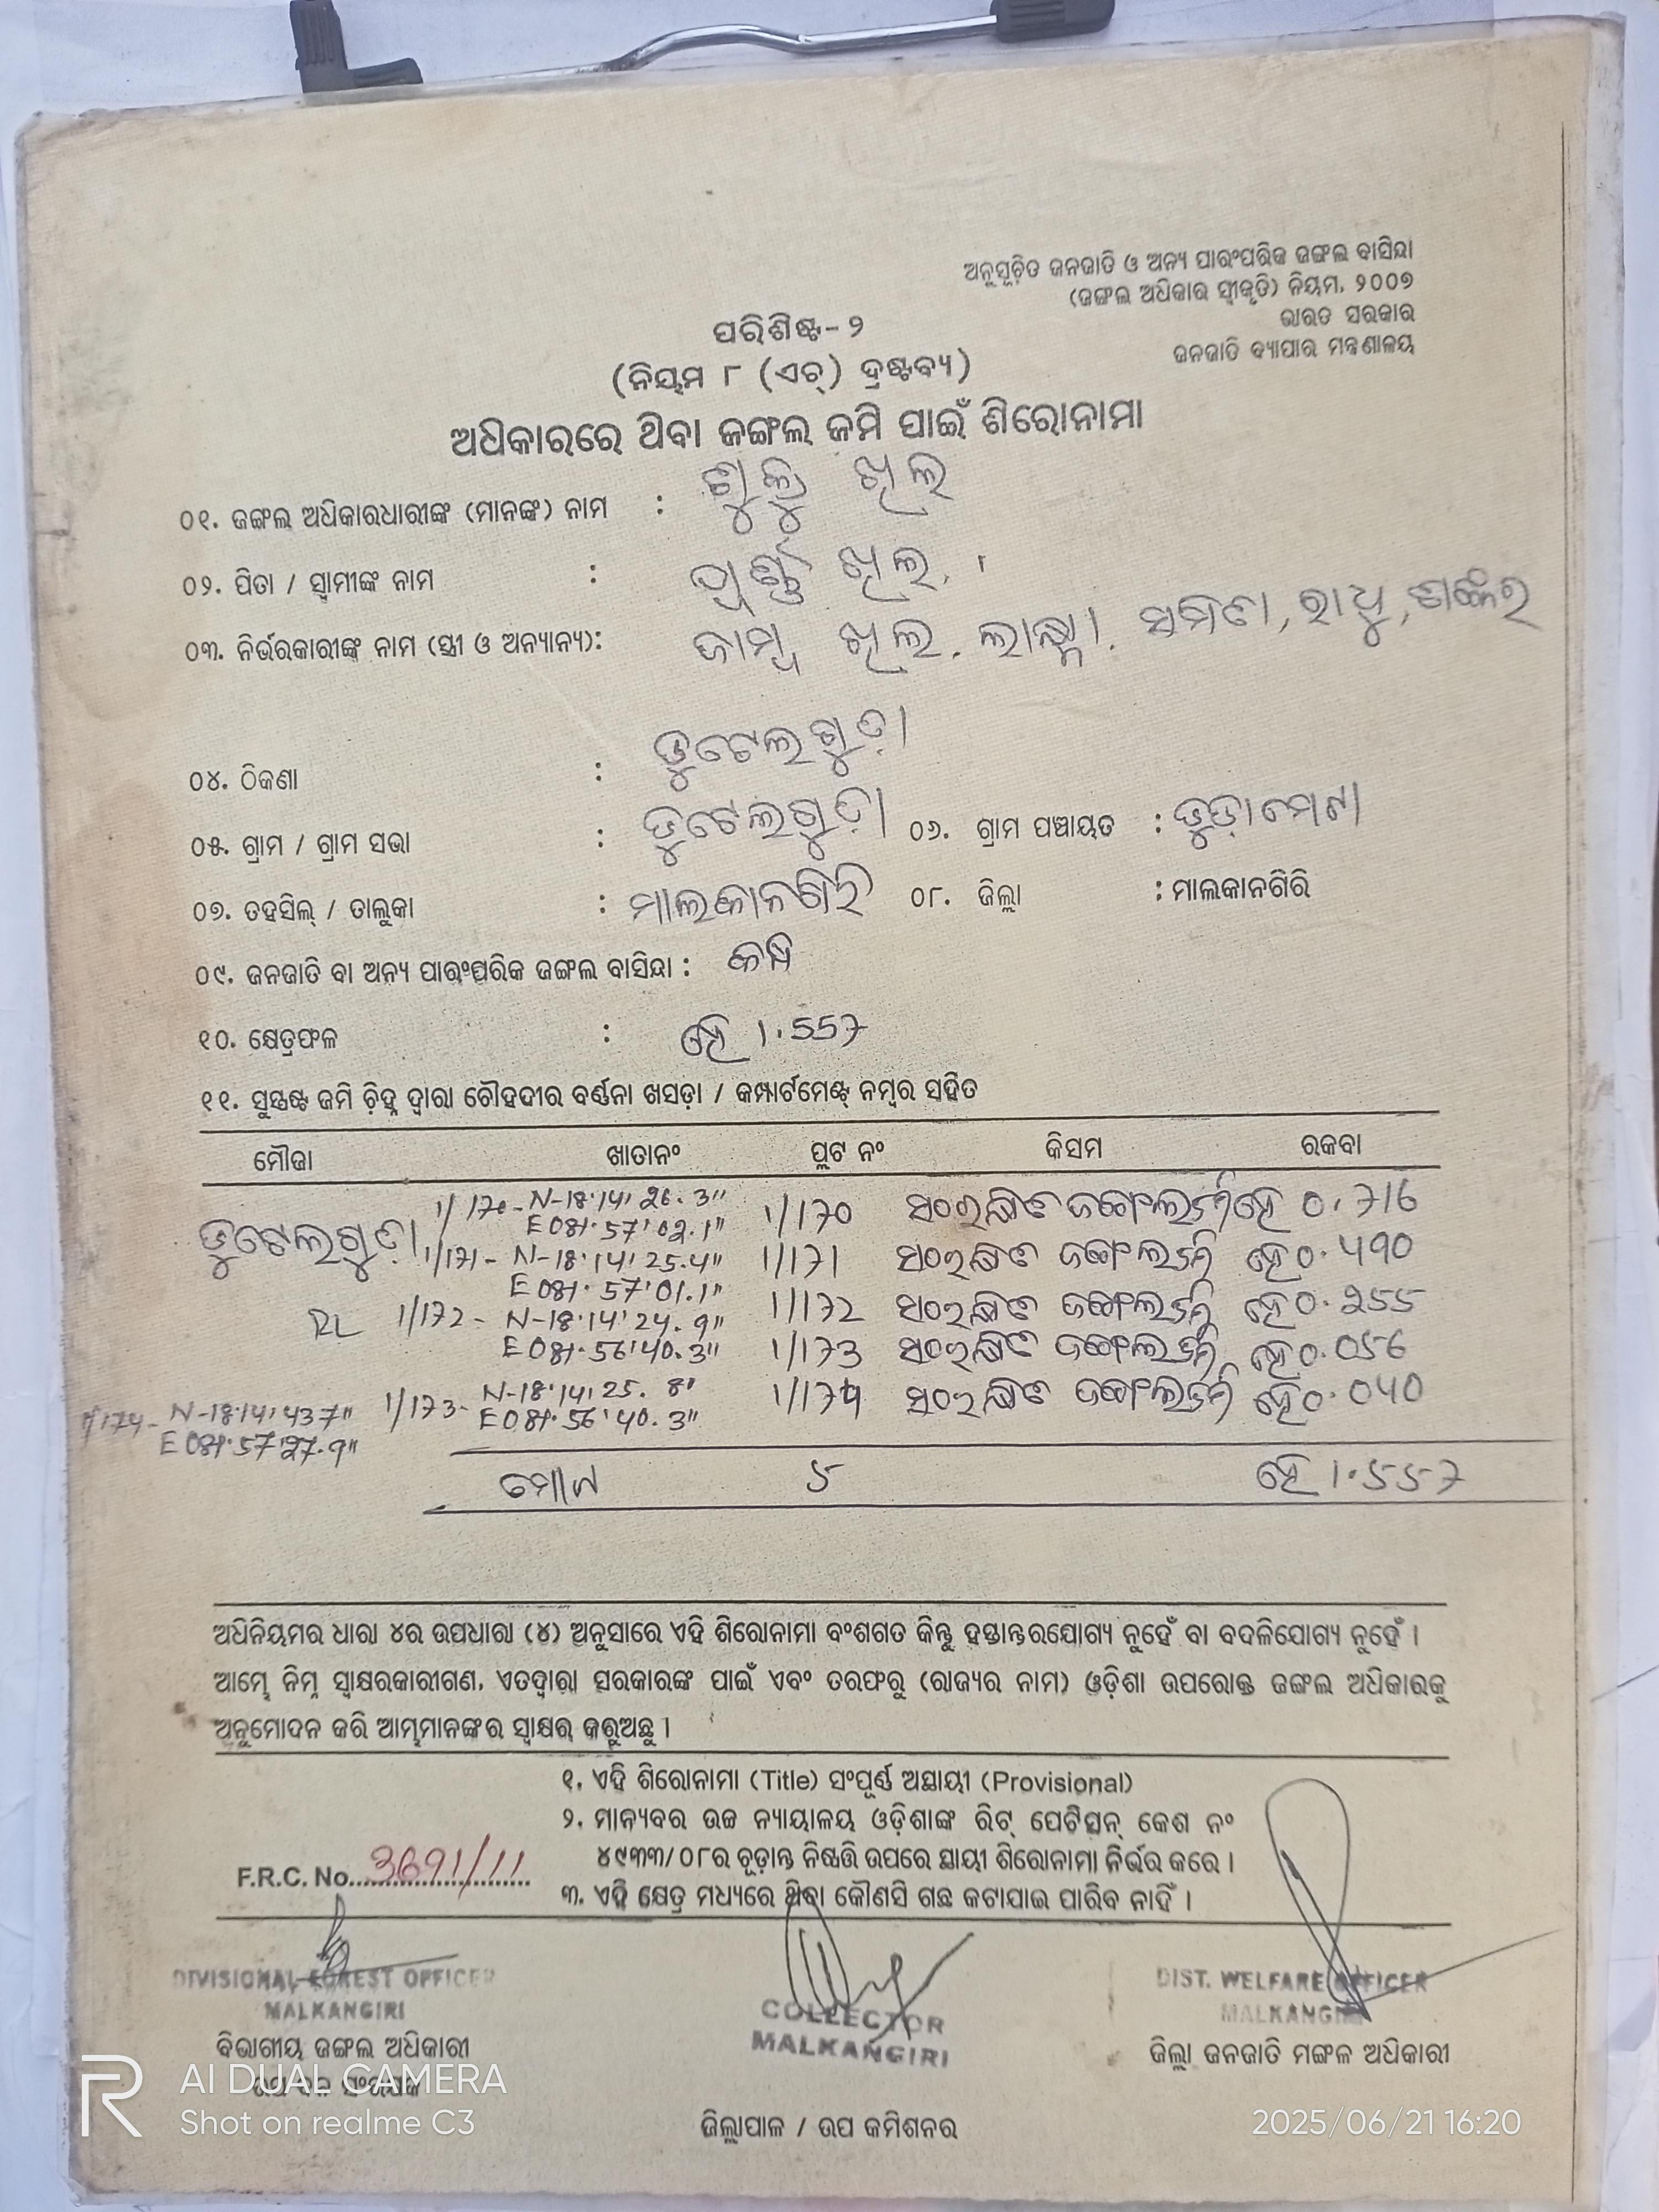 ଅନୁସୂଚିତ ଜନଜାତି ଓ ଅନ୍ୟ ପାରଂପରିକ ଜଙ୍ଗଲ ବାସିନ୍ଦା
(ଜଙ୍ଗଲ ଅଧିକାର ସ୍ୱୀକୃତି) ନିୟମ, ୨୦୦୭
ଭାରତ ସରକାର
ଜନଜାତି ବ୍ୟାପାର ମନ୍ତ୍ରଣାଳୟ
ପରିଶିଷ୍ଟ-୨
(ନିୟମ ୮ (ଏଚ୍) ଦ୍ରଷ୍ଟବ୍ୟ)
ଅଧିକାରରେ ଥିବା ଜଙ୍ଗଲ ଜମି ପାଇଁ ଶିରୋନାମା
୦୧. ଜଙ୍ଗଲ ଅଧିକାରଧାରୀଙ୍କ (ମାନଙ୍କ) ନାମ :
୦୨. ପିତା / ସ୍ୱାମୀଙ୍କ ନାମ : ପୂର୍ଣ୍ଣ
୦୩. ନିର୍ଭରକାରୀଙ୍କ ନାମ (ସ୍ତ୍ରୀ ଓ ଅନ୍ୟାନ୍ୟ): ରାଧୁ, ଶଙ୍କର
୦୪. ଠିକଣା : ତୁଟେଲଗୁଡ଼ା
୦୫. ଗ୍ରାମ / ଗ୍ରାମ ସଭା : ତୁଟେଲଗୁଡ଼ା ୦୬. ଗ୍ରାମ ପଞ୍ଚାୟତ : ତୁଡ଼ାମେଟା
୦୭. ତହସିଲ୍ / ତାଲୁକା : ମାଲକାନଗିରି ୦୮. ଜିଲ୍ଲା : ମାଲକାନଗିରି
୦୯. ଜନଜାତି ବା ଅନ୍ୟ ପାରଂପରିକ ଜଙ୍ଗଲ ବାସିନ୍ଦା :
୧୦. କ୍ଷେତ୍ରଫଳ : ହେ 1.557
୧୧. ସୁସ୍ପଷ୍ଟ ଜମି ଚିହ୍ନ ଦ୍ୱାରା ଚୌହଦ୍ଦୀର ବର୍ଣ୍ଣନା ଖସଡ଼ା / କମ୍ପାର୍ଟମେଣ୍ଟ୍ ନମ୍ବର ସହିତ
ମୌଜା ଖାତାନଂ ପ୍ଲଟ ନଂ କିସମ ରକବା
1/170- N-18°14' 26.3" 1/170 ସଂରକ୍ଷିତ ଜଙ୍ଗଲ ଜମି ହେ 0.716
ତୁଟେଲଗୁଡ଼ା E 081°57'02.1"
1/171- N-18°14'25.4" 1/171 ସଂରକ୍ଷିତ ଜଙ୍ଗଲ ଜମି ହେ 0.490
E 081°57'01.1"
RL 1/172- N-18°14'24.9" 1/172 ସଂରକ୍ଷିତ ଜଙ୍ଗଲ ଜମି ହେ 0.255
E 081°56'40.3" 1/173 ସଂରକ୍ଷିତ ଜଙ୍ଗଲ ଜମି ହେ 0.056
1/173- N-18°14'25.8" 1/174 ସଂରକ୍ଷିତ ଜଙ୍ଗଲ ଜମି ହେ 0.040
1/174- N-18°14'43.7" E 081°56'40.3"
E 081°57'27.9"
ମୋଟ 5 ହେ 1.557
ଅଧିନିୟମର ଧାରା ୪ର ଉପଧାରା (୪) ଅନୁସାରେ ଏହି ଶିରୋନାମା ବଂଶଗତ କିନ୍ତୁ ହସ୍ତାନ୍ତରଯୋଗ୍ୟ ନୁହେଁ ବା ବଦଳିଯୋଗ୍ୟ ନୁହେଁ ।
ଆମ୍ଭେ ନିମ୍ନ ସ୍ୱାକ୍ଷରକାରୀଗଣ, ଏତଦ୍ଦ୍ୱାରା ସରକାରଙ୍କ ପାଇଁ ଏବଂ ତରଫରୁ (ରାଜ୍ୟର ନାମ) ଓଡ଼ିଶା ଉପରୋକ୍ତ ଜଙ୍ଗଲ ଅଧିକାରକୁ
ଅନୁମୋଦନ କରି ଆମ୍ଭମାନଙ୍କର ସ୍ୱାକ୍ଷର କରୁଅଛୁ ।
୧. ଏହି ଶିରୋନାମା (Title) ସଂପୂର୍ଣ୍ଣ ଅସ୍ଥାୟୀ (Provisional)
୨. ମାନ୍ୟବର ଉଚ୍ଚ ନ୍ୟାୟାଳୟ ଓଡ଼ିଶାଙ୍କ ରିଟ୍ ପେଟିସନ୍ କେଶ ନଂ
୪୯୩୩/୦୮ର ଚୂଡ଼ାନ୍ତ ନିଷ୍ପତ୍ତି ଉପରେ ସ୍ଥାୟୀ ଶିରୋନାମା ନିର୍ଭର କରେ ।
F.R.C. No. 3691/11
୩. ଏହି କ୍ଷେତ୍ର ମଧ୍ୟରେ ଥିବା କୌଣସି ଗଛ କଟାଯାଇ ପାରିବ ନାହିଁ ।
DIVISIONAL FOREST OFFICER
MALKANGIRI
COLLECTOR
MALKANGIRI
DIST. WELFARE OFFICER
MALKANGIRI
ବିଭାଗୀୟ ଜଙ୍ଗଲ ଅଧିକାରୀ
ଉପ ବନ ସଂରକ୍ଷକ
ଜିଲ୍ଲା ଜନଜାତି ମଙ୍ଗଳ ଅଧିକାରୀ
ଜିଲ୍ଲାପାଳ / ଉପ କମିଶନର
AI DUAL CAMERA
Shot on realme C3
2025/06/21 16:20